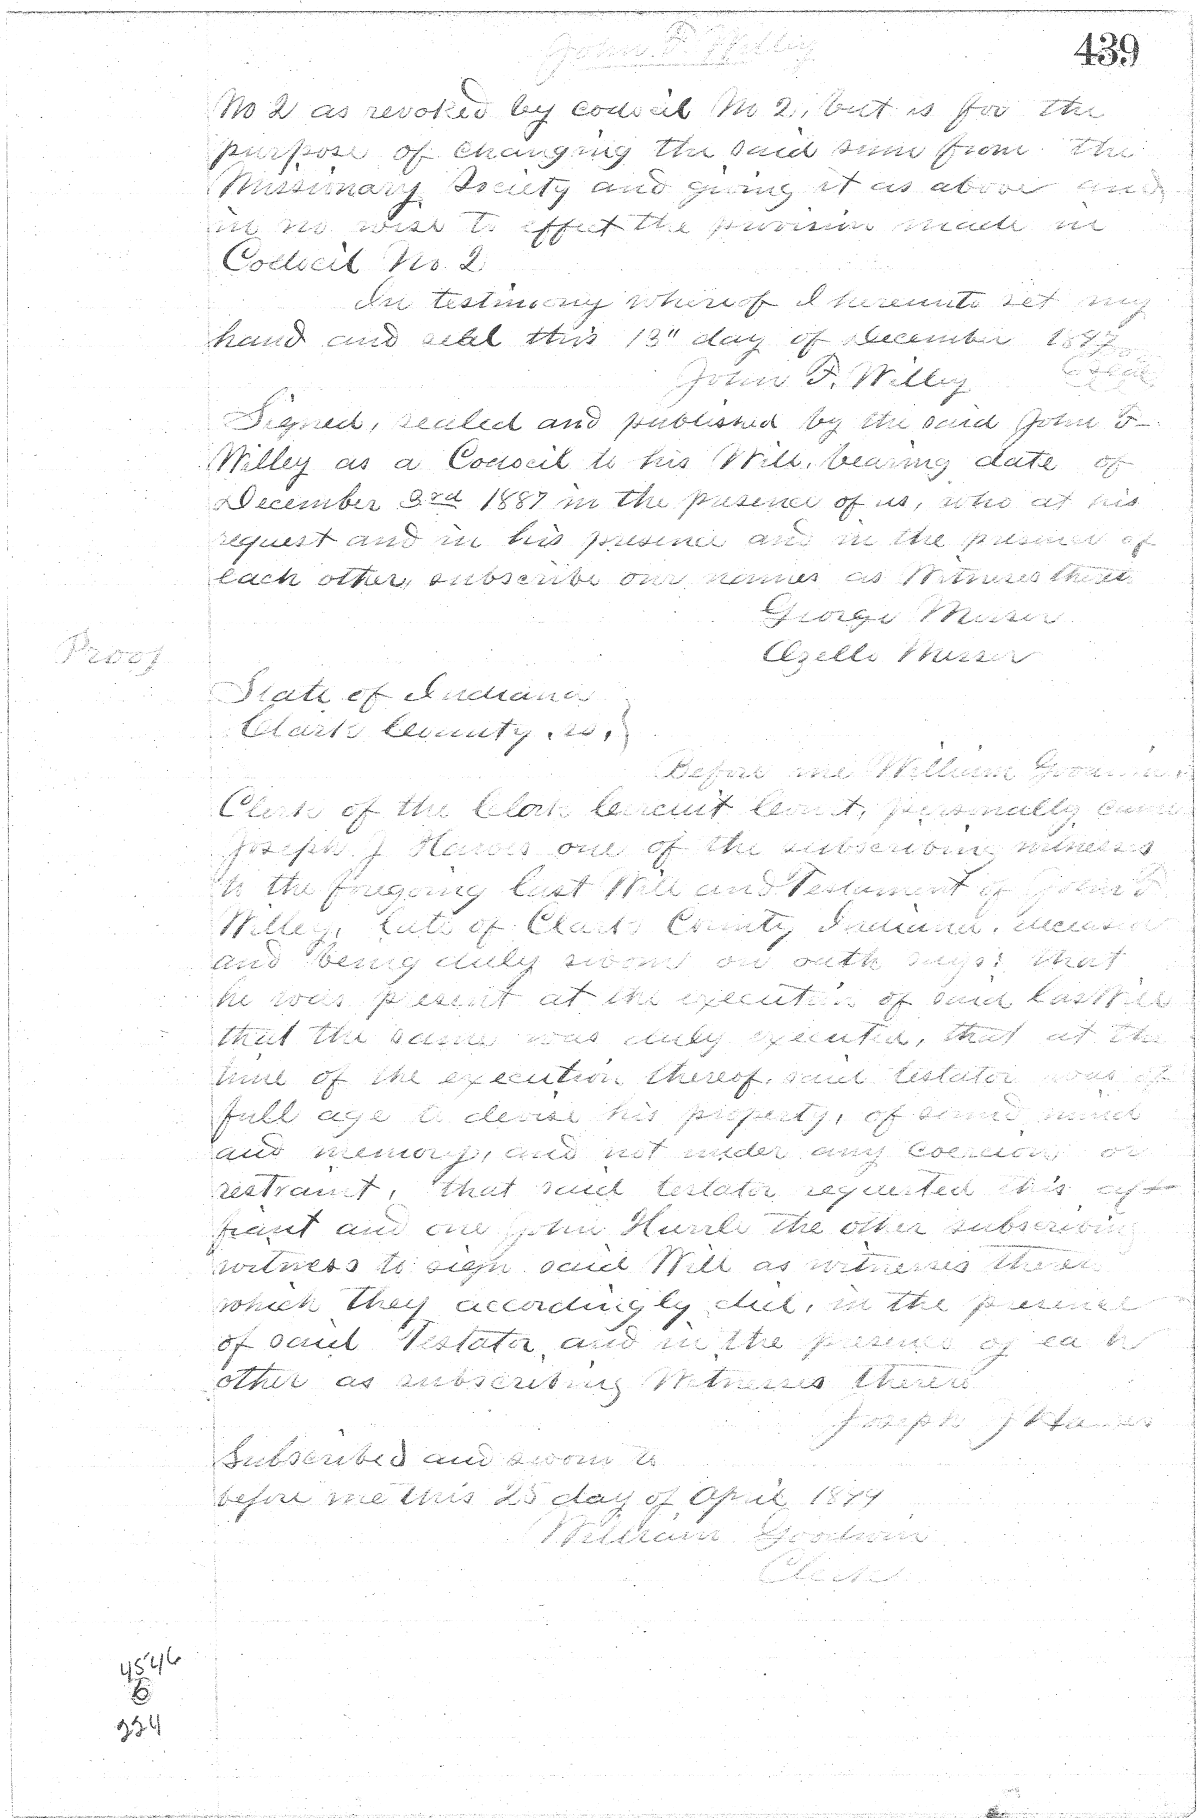 John F. Willey
439
No 2 as revoked by codocil No 2, but is for the
purpose of changing the said sum from the
Missionary Society and giving it as above and
in no wise to effect the provision made in
Codocil No. 2
In testimony whereof I hereunto set my
hand and seal this 13" day of December
John F. Willey Seal
Signed, sealed and published by the said John F
Willey as a Codocil to his Will, bearing date of
December 3rd 1887 in the presence of us, who at his
request and in his presence and in the presence of
each other, subscribe our names as Witnesses thereto
George Musser
Ozella Musser
Proof
State of Indiana
Clark County, ss, }
Before me William Goodwin
Clerk of the Clark Circuit Court, personally came
Joseph J one of the subscribing witnesses
to the foregoing last Will and Testament of John F
Willey, late of Clark County Indiana, deceased
and being duly sworn on oath says: that
he was present at the execution of said last Will
that the same was duly executed, that at the
time of the execution thereof, said testator was of
full age to devise his property, of sound mind
and memory, and not under any coercion or
restraint, that said testator requested this af-
fiant and one John the other subscribing
witness to sign said Will as witnesses thereto
which they accordingly did, in the presence
of said Testator, and in the presence of each
other as subscribing Witnesses thereto
Joseph J
Subscribed and sworn to
before me this 25 day of April
William Goodwin
Clerk
4546
6
224